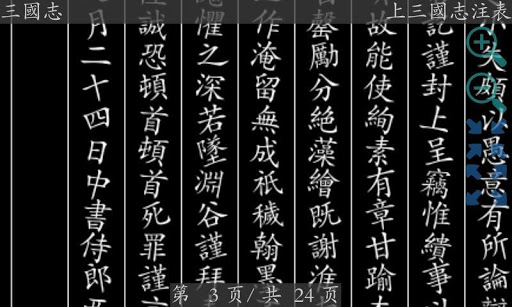 三國志
上三國志注表
失頗以愚意有所論
記謹封上呈竊惟繢事
故能使絢素有章甘踰
罄勵分絕藻繪既謝淮
作淹留無成祇穢翰墨
愧懼之深若墜淵谷謹拜
誠恐頓首頓首死罪謹
月二十四日中書侍郎
第 3 页/共 24 页